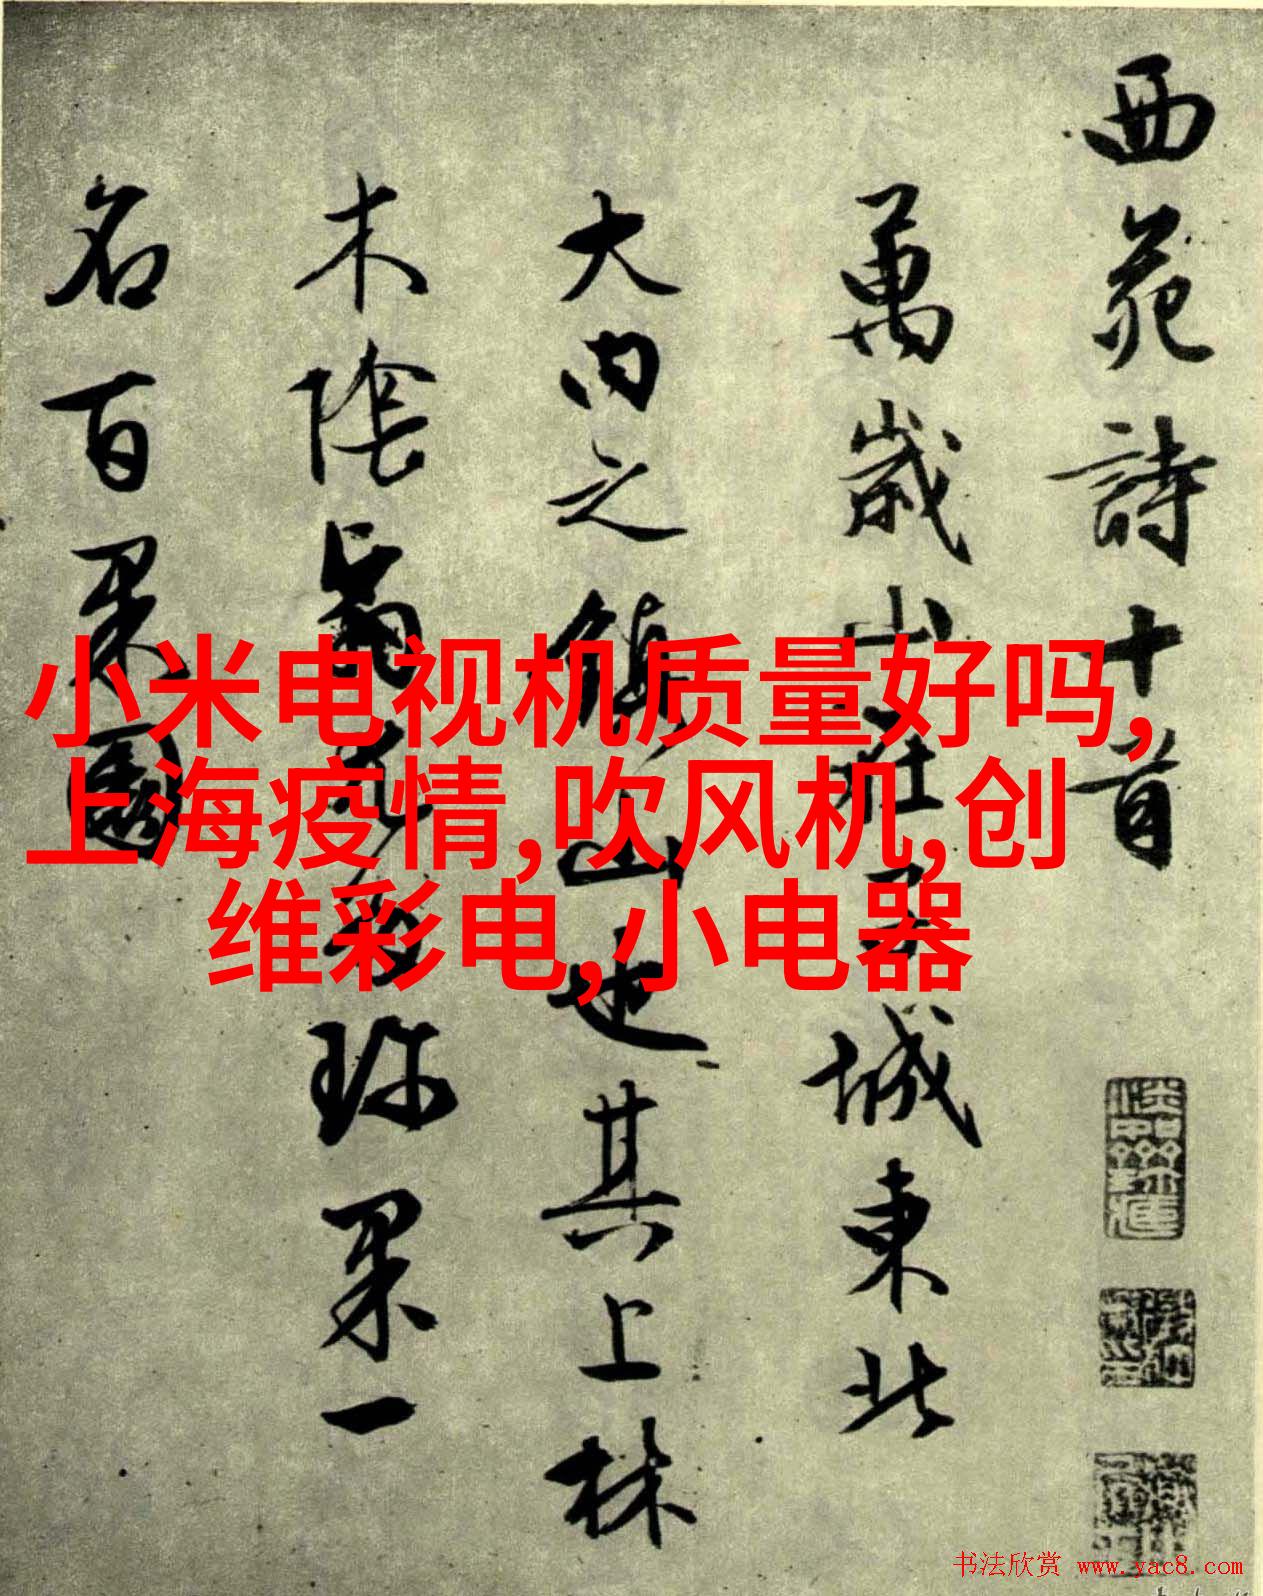 西苑詩十首
萬歲山在子城東北
大內之鎮山也其上林
木陰翳尤多珍果一
名百果園
小米电视机质量好吗,
上海疫情,吹风机,创
维彩电,小电器
书法欣赏 www.yac8.com